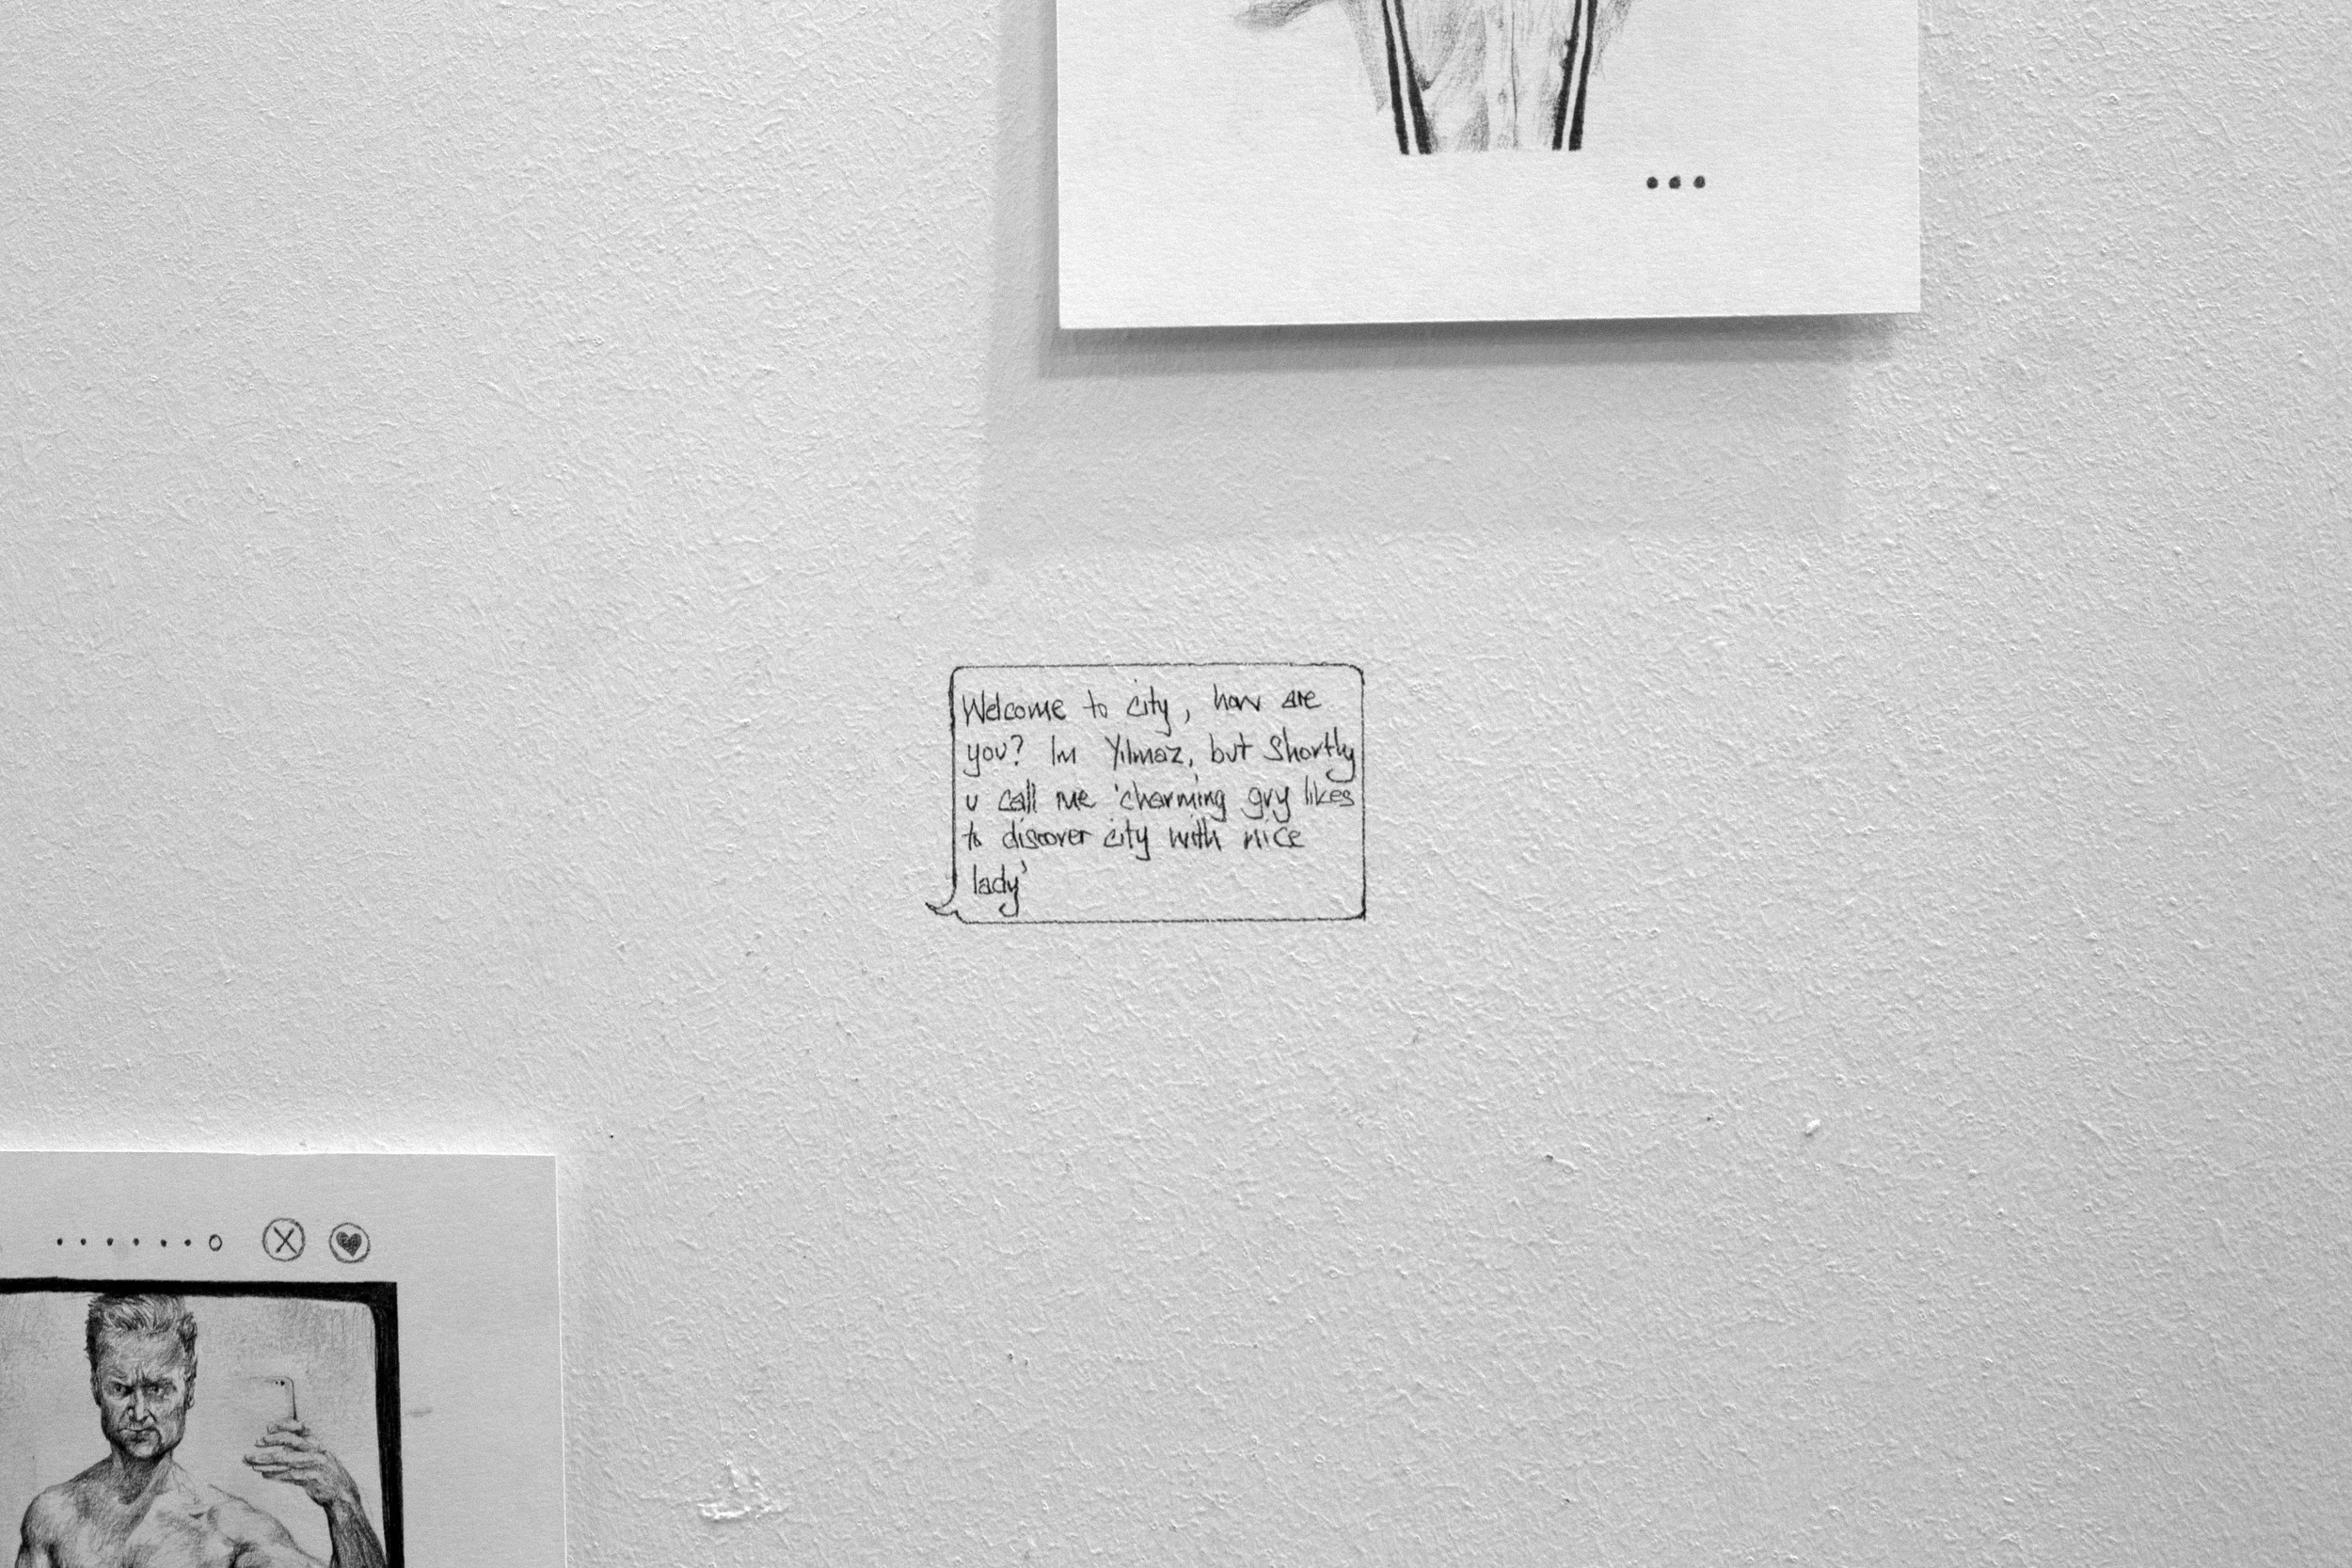 Welcome to city, how are
you? Im Yılmaz, but Shortly
u call me 'charming guy likes
to discover city with nice
lady'